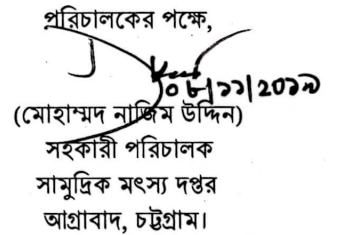 পরিচালকের পক্ষে,
০৮/১১/২০১৯
(মোহাম্মদ নাজিম উদ্দিন)
সহকারী পরিচালক
সামুদ্রিক মৎস্য দপ্তর
আগ্রাবাদ, চট্টগ্রাম।